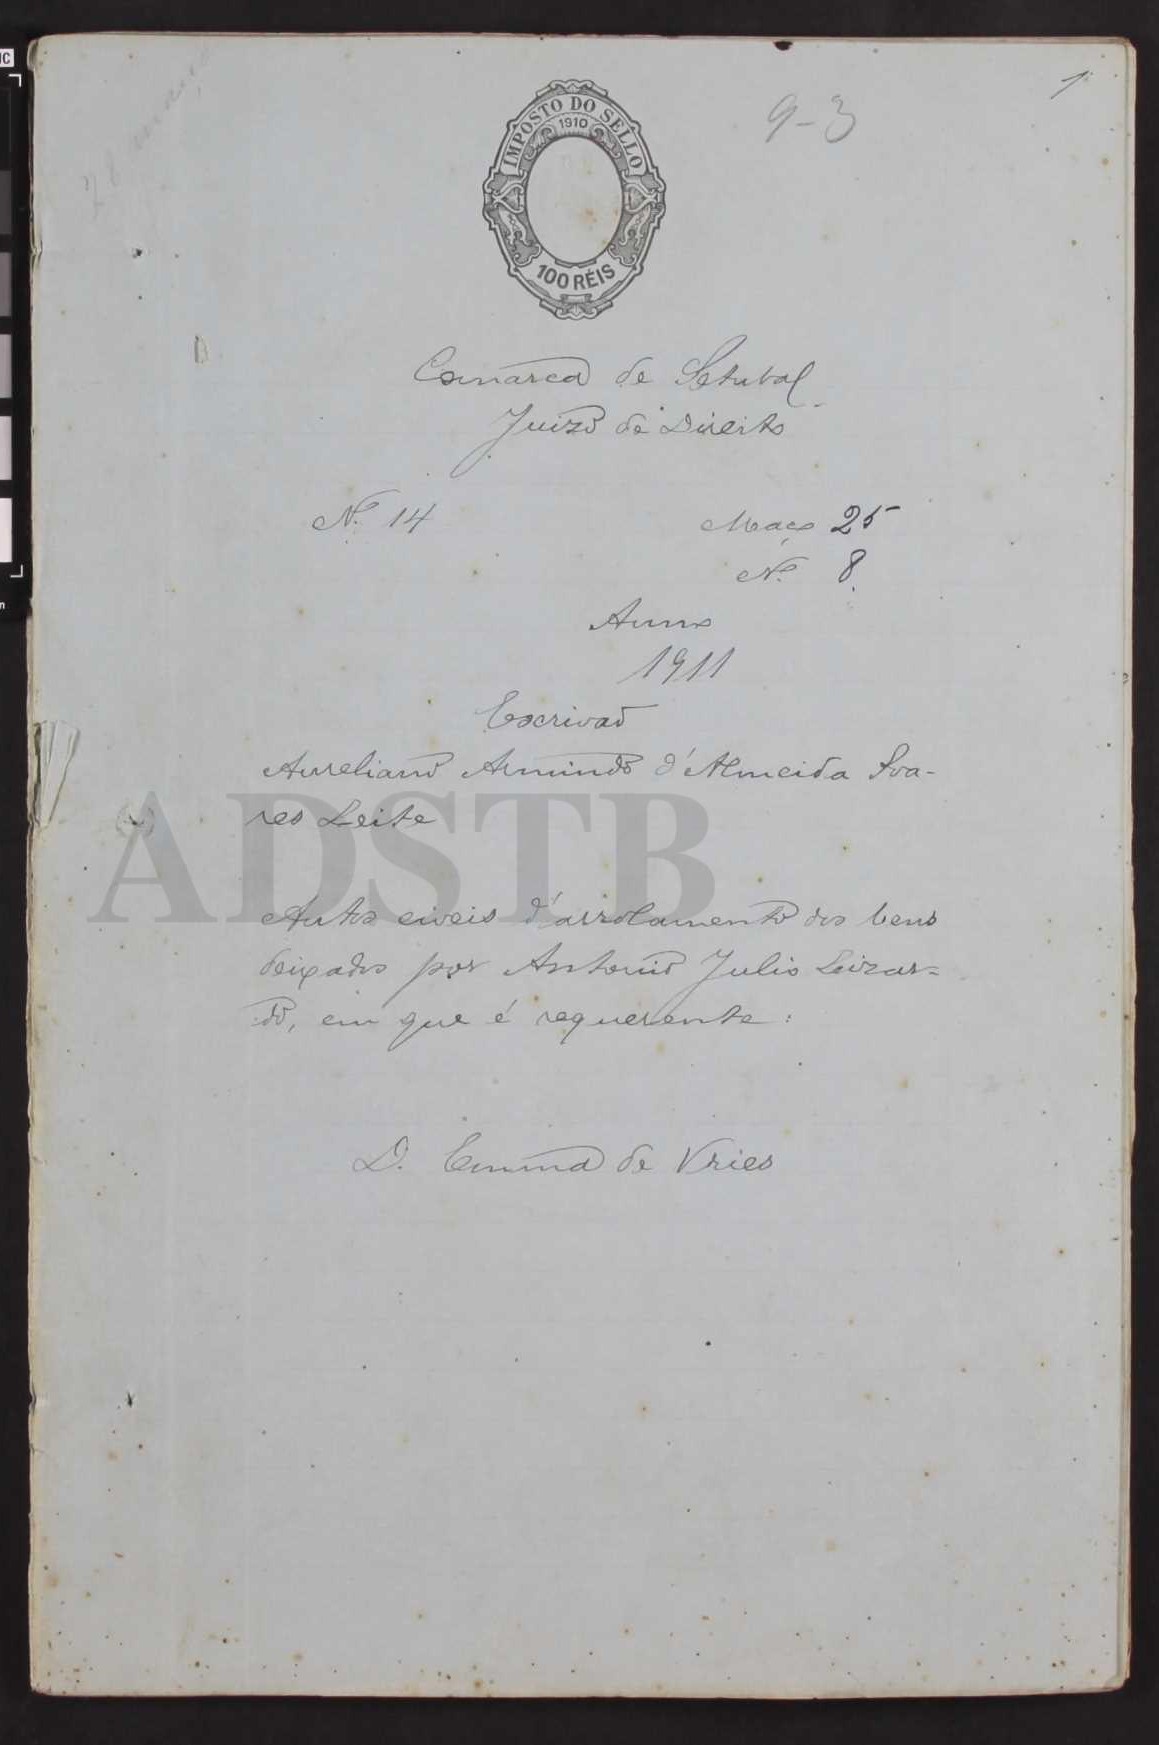 1
9-3
IMPOSTO DO SELLO
1910
100 RÉIS
Comarca de Setubal
Juizo de Direito
Nº 14
Maço 25
Nº 8
Anno
1911
Escrivaõ
Aureliano Armindo d'Almeida Soa-
res Leite
ADSTB
Autos civeis d'arrolamento dos bens
deixados por Antonio Julio Leizar-
do, em que é requerente:
D. Emma de Vries